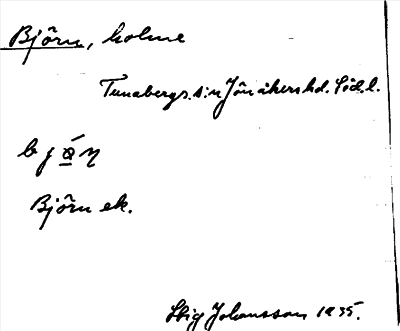 Björn, holme
Tunabergs. s:n Jönåkers hd. Söd.l.
bjö́η
Björn ek.
Stig Johansson 1935.